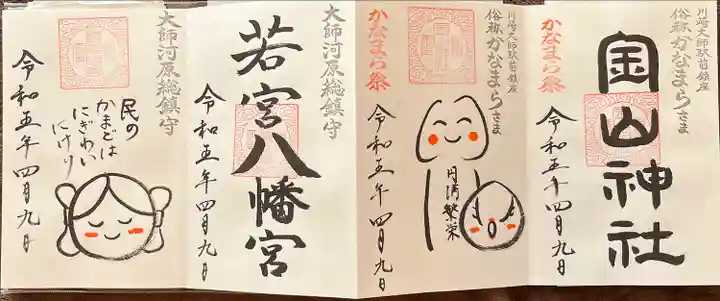 川崎大師駅前鎮座
俗称かなまらさま
金山神社
かなまら祭
令和五年四月九日
川崎大師駅前鎮座
俗称かなまらさま
円満繁栄
かなまら祭
令和五年四月九日
大師河原総鎮守
若宮八幡宮
令和五年四月九日
大師河原総鎮守
民の
かまどは
にぎわい
にけり
令和五年四月九日